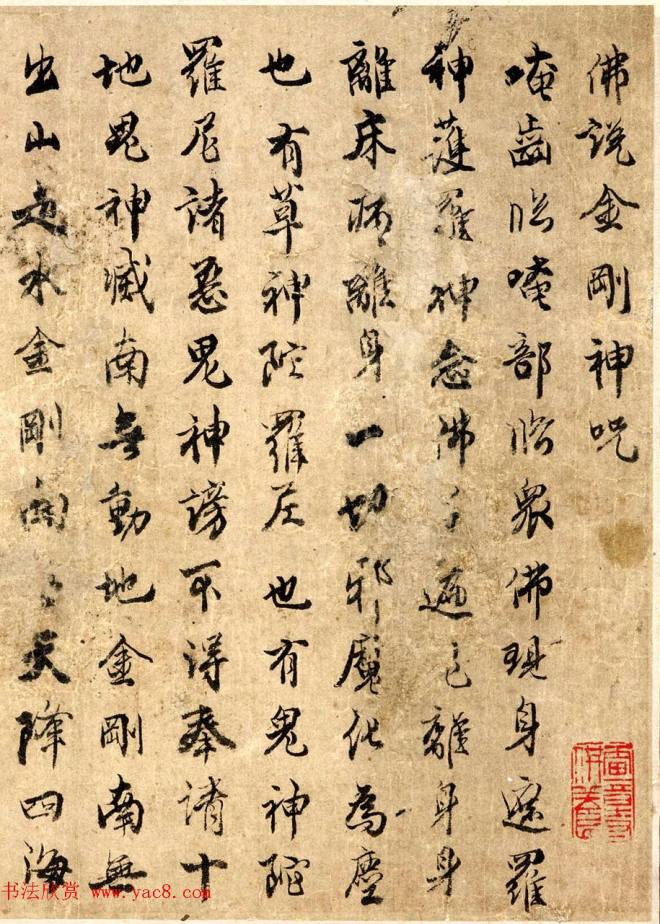 佛說金剛神咒
唵齒臨唵部臨眾佛現身遮羅
神護羅神念佛了遍已離身身
離床床離身一切邪魔化為塵
也有草神陀羅尼也有鬼神陀
羅尼諸惡鬼神謗不得奉請十
地鬼神滅南無動地金剛南無
出山過水金剛南無天降四海
书法欣赏 www.yac8.com